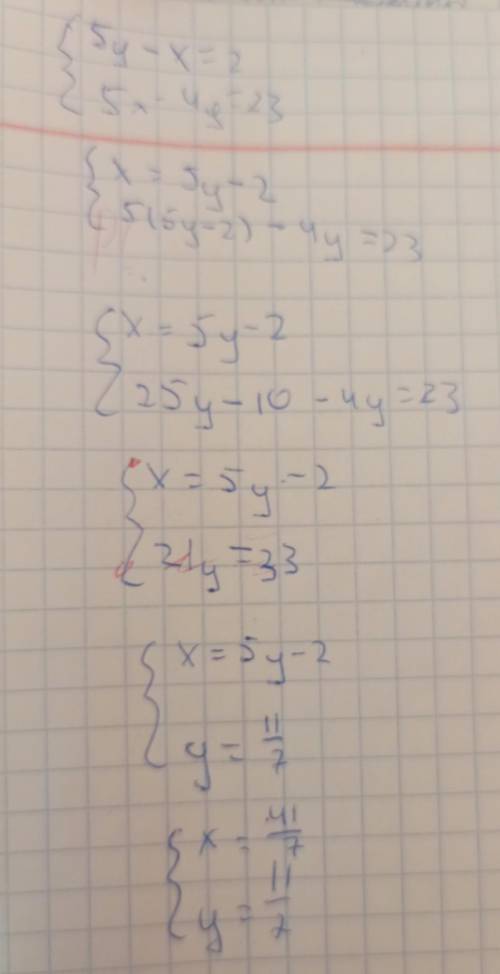 { 5y - x = 2
5x - 4y = 23
{ x = 5y - 2
5(5y-2) - 4y = 23
{ x = 5y - 2
25y - 10 - 4y = 23
{ x = 5y - 2
21y = 33
{ x = 5y - 2
y = 11/7
{ x = 41/7
y = 11/7